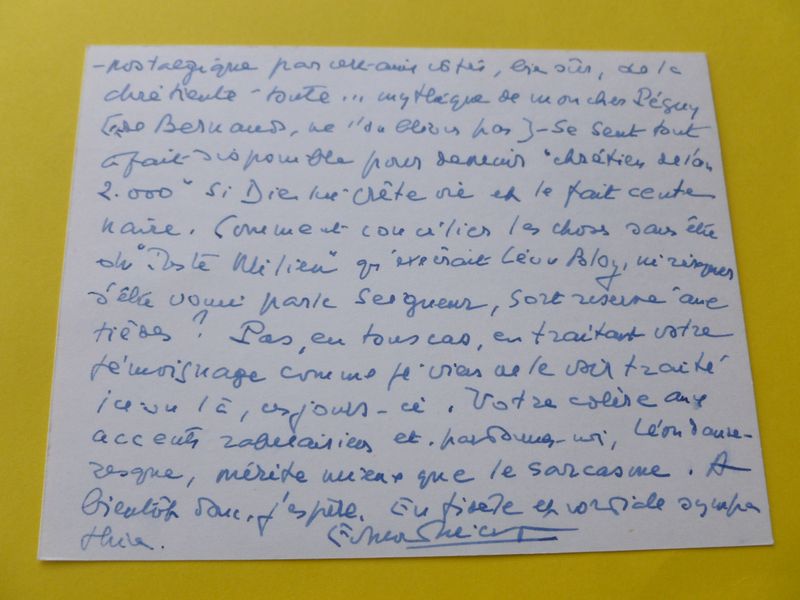 -nostalgique par certains côtés, bien sûr, de la
chrétienté-toute... mythique de mon cher Péguy
de Bernanos, ne l'oublions pas]-Se sent tout
à fait disponible pour devenir "chrétien de l'an
2.000" si Dieu lui prête vie et le fait cente
naire. Comment concilier les choses sans être
du "Juste Milieu" qu'exécrait Léon Bloy, ni risquer
d'être vomi par le Seigneur, sort réservé aux
tièdes? Pas, en tous cas, en traitant votre
témoignage comme je viens de le voir traité
ici ou là, ces jours-ci. Votre colère aux
accents rabelaisiens et, pardonnez-moi,
resque, mérite mieux que le sarcasme. A
bientôt donc, j'espère. En fidèle et cordiale sympa
thie.